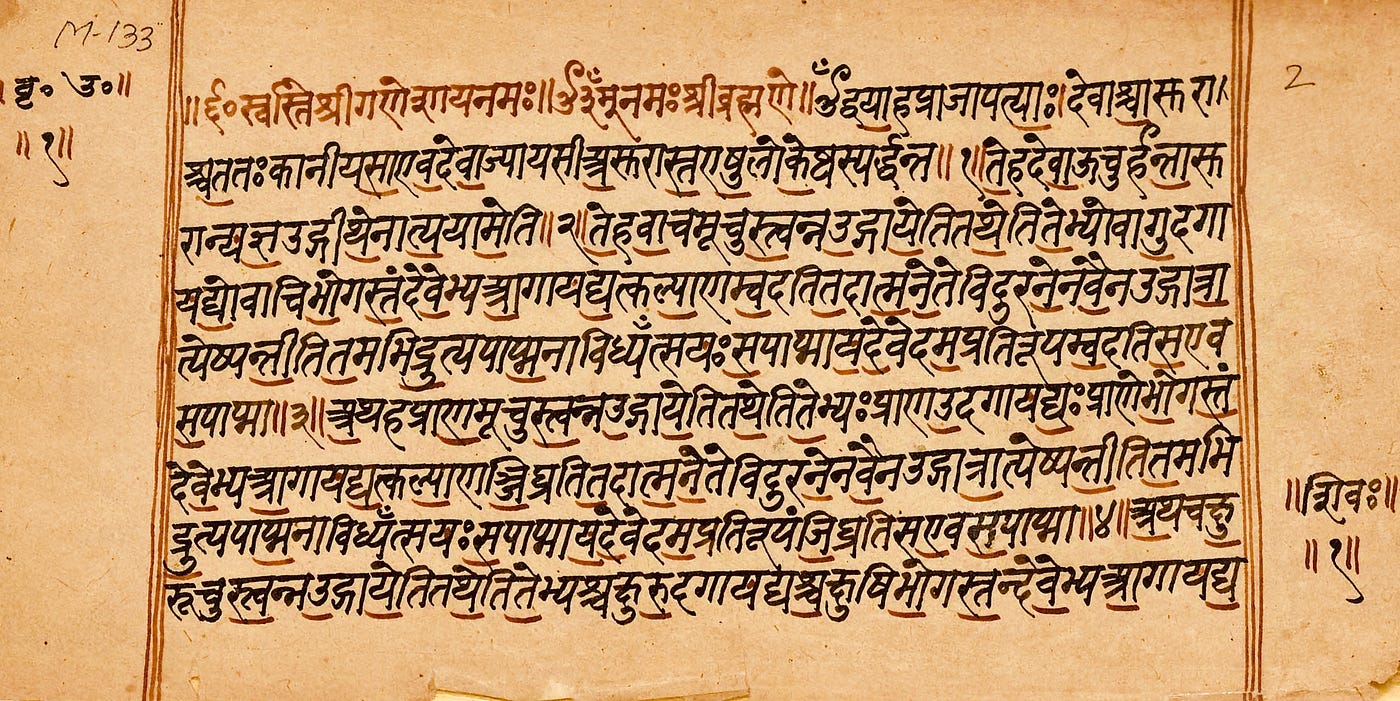 M-133
बृ॰ उ॰॥
॥१॥
2
॥ॐ॰स्वस्तिश्रीगणेशायनमः॥ॐनमःश्रीब्रह्मणे॥ॐद्वयाहप्राजापत्याः।देवाश्चासुरा।
श्चततःकानीयसाएवदेवाज्यायसीअसुरास्तएषुलोकेष्वस्पर्द्धन्त॥१॥तेहदेवाऊचुर्हन्तासु
रान्यज्ञउद्गीथेनात्ययामेति॥२॥तेहवाचमूचुस्त्वन्नउद्गायेतितथेतितेभ्योवागुदगा
यद्योवाचिभोगस्तंदेवेभ्यआगायद्यत्कल्याणम्वदतितदात्मनेतेविदुरनेनवैनउद्गात्रा
त्येष्यन्तीतितमभिद्रुत्यपाप्मनाविध्यँत्सयःसपाप्मायदेवेदमप्रतिरूपम्वदतिसएव
सपाप्मा॥३॥अथहप्राणमूचुस्त्वन्नउद्गायेतितथेतितेभ्यःप्राणउदगायद्यःप्राणेभोगस्तं
देवेभ्यआगायद्यत्कल्याणञ्जिघ्रतितदात्मनेतेविदुरनेनवैनउद्गात्रात्येष्यन्तीतितमभि
द्रुत्यपाप्मनाविध्यँत्सयःसपाप्मायदेवेदमप्रतिरूपंजिघ्रतिसएवसपाप्मा॥४॥अथचक्षु
रूचुस्त्वन्नउद्गायेतितथेतितेभ्यश्चक्षुरुदगायद्यश्चक्षुषिभोगस्तन्देवेभ्यआगायद्य
॥शिवः॥
॥१॥